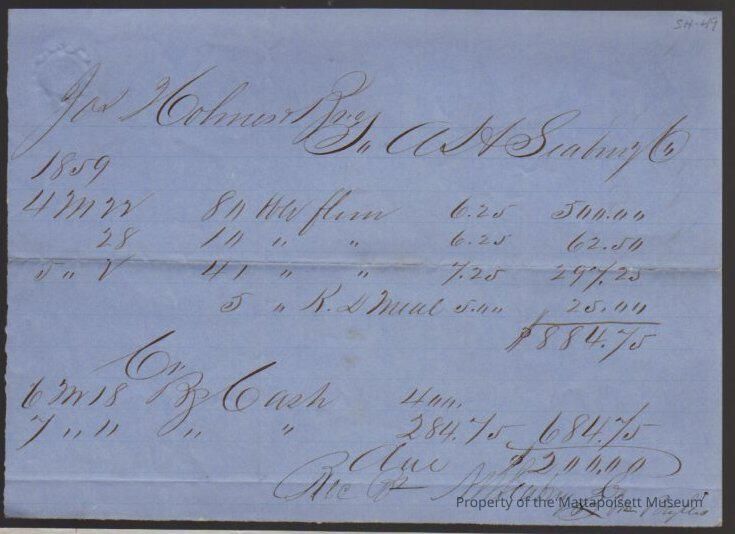 SH-49
Jos Holmes & Bro
To A H Seabury Co
1859
4 M 22 80 bbl flour 6.25 500.00
28 10 " " 6.25 62.50
5 " 41 " " 7.25 297.25
5 " K. D Meal 5.00 25.00
$884.75
Cr
6 M 18 By Cash 400.
7 " " " " 284.75 684.75
Due $200.00
Rec Pt
Property of the Mattapoisett Museum